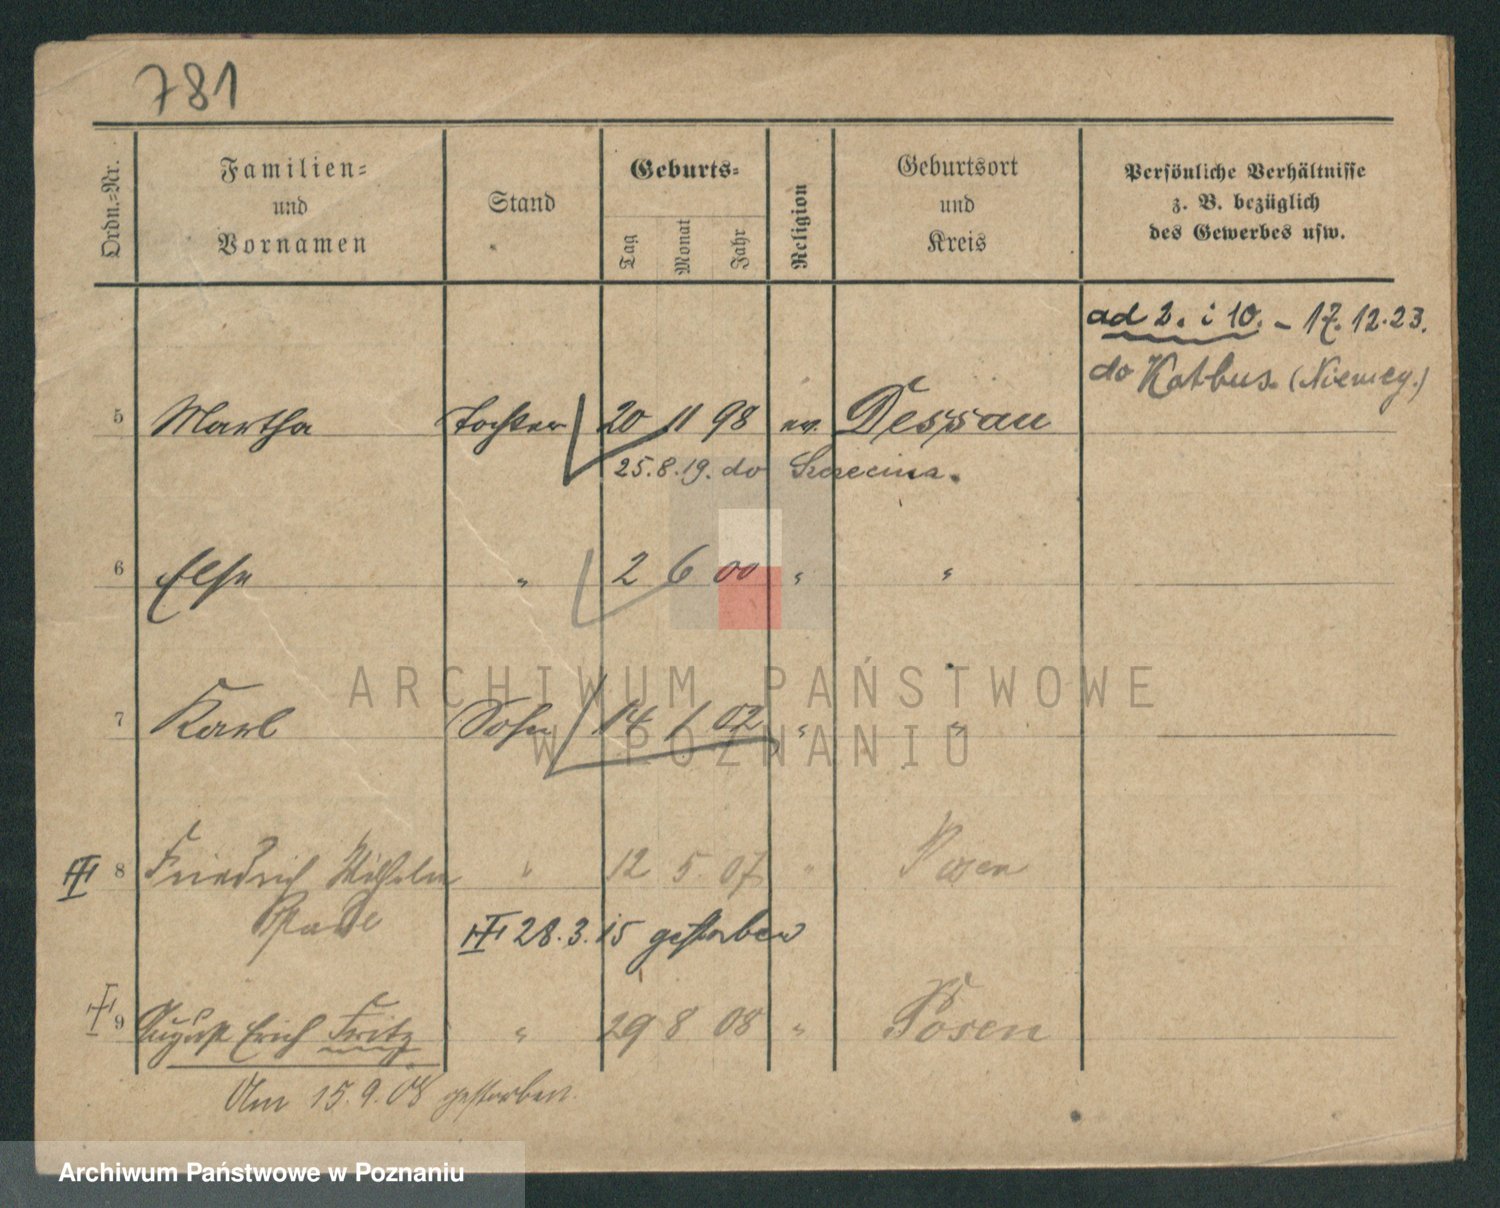 781
Ordn.-Nr.
Familien-
und
Vornamen
Stand
Geburts-
Tag
Monat
Jahr
Religion
Geburtsort
und
Kreis
Persönliche Verhältnisse
z. B. bezüglich
des Gewerbes usw.
ad 2. i 10. - 17.12.23.
do Kotbus. (Niemcy.)
5 Martha Tochter 20 11 98 ev. Dessau
25.8.19. do Szczecina.
6 Else " 2 6 00 " "
7 Karl Sohn 14 1 02 " "
8 Friedrich Wilhelm " 12 5 07 " Posen
28.3.15 gestorben
9 August Erich Fritz " 29 8 08 " Posen
Am 15.9.08 gestorben.
ARCHIWUM PAŃSTWOWE
W POZNANIU
Archiwum Państwowe w Poznaniu